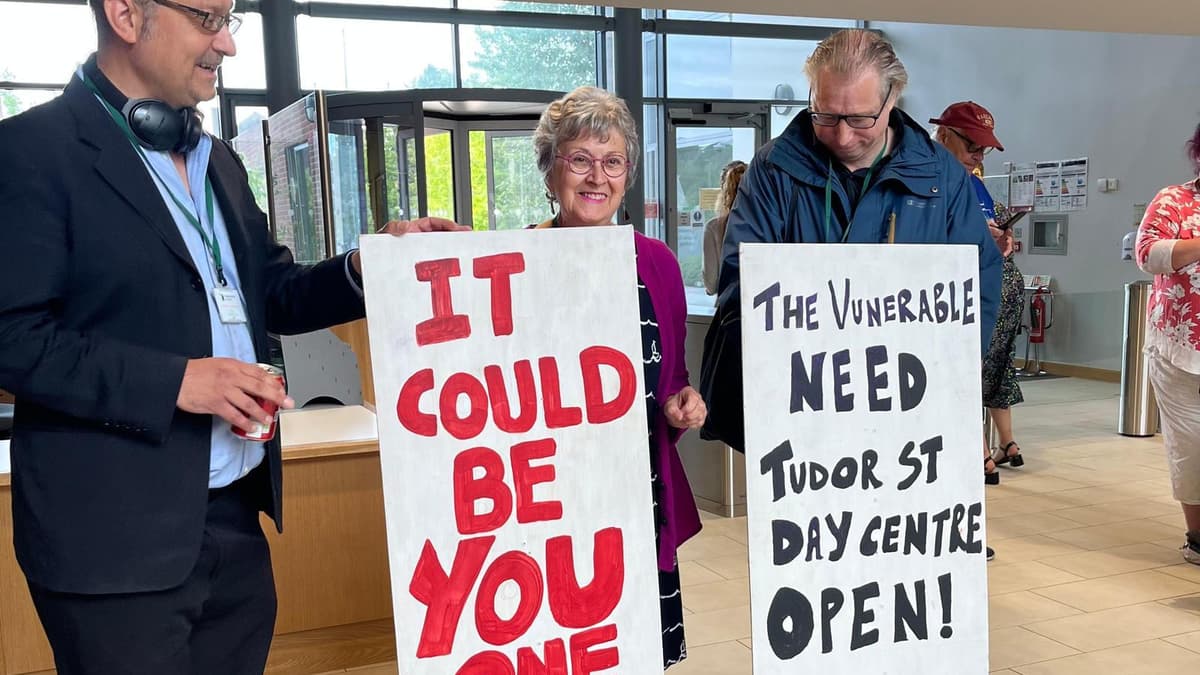 IT
COULD
BE
YOU
ONE
THE VUNERABLE
NEED
TUDOR ST
DAY CENTRE
OPEN!